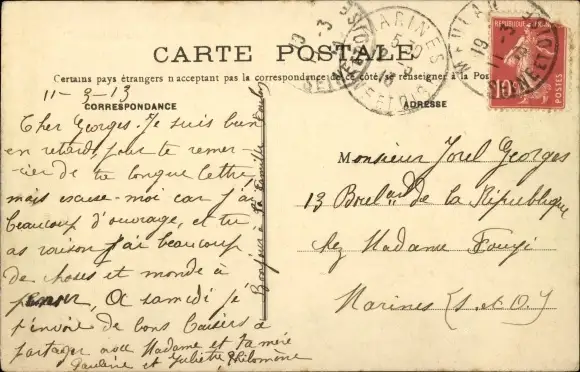 CARTE POSTALE
Certains pays étrangers n'acceptant pas la correspondance de ce côté, se renseigner à la Pos
CORRESPONDANCE
ADRESSE
11-3-13
Cher Georges. Je suis bien
en retard pour te remer-
cier de ta longue lettre,
mais excuse-moi car j'ai
beaucoup d'ouvrage, et tu
as raison j'ai beaucoup
de choses et monde à
A samedi je
t'envoie de bons baisers à
partager avec Madame et ta mère
Pauline et Juliette, Philomène
Bonjour à la famille
Monsieur Jorel Georges
13 Boulard de la République
chez Madame
Marines (S. et O.)
MARINES
MEULAN
SEINE ET OISE
REPUBLIQUE FRANÇAISE
10c
POSTES